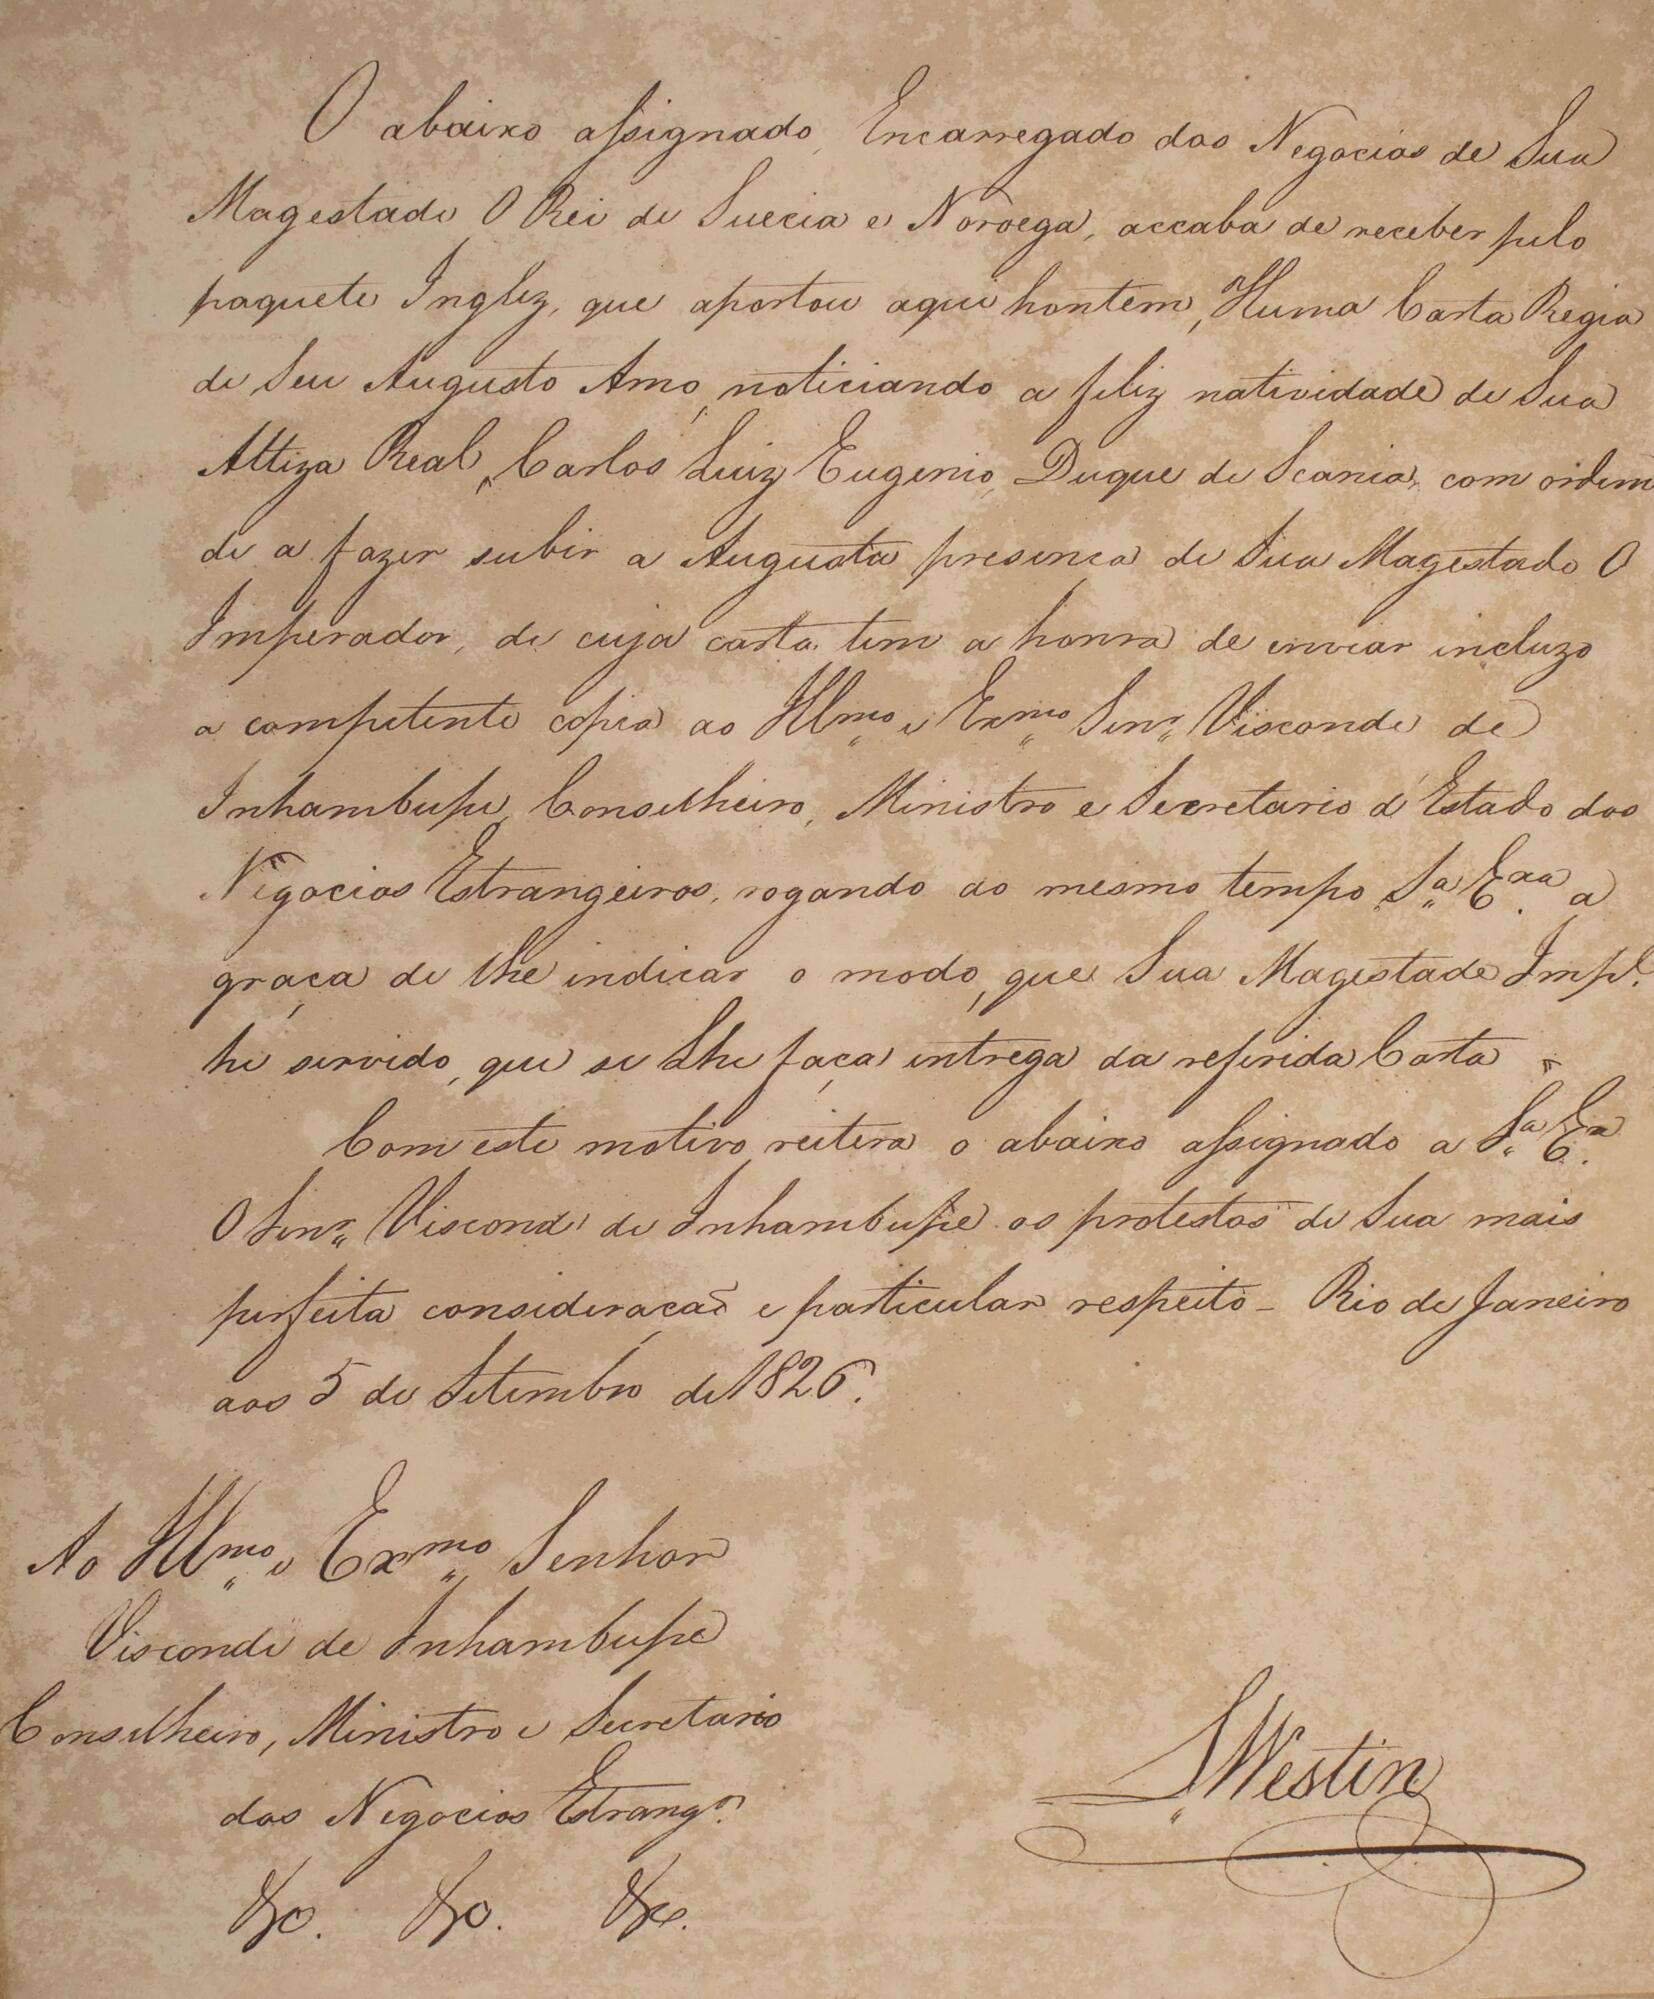 O abaixo assignado, Encarregado dos Negocios de Sua
Magestade O Rei de Suecia e Noroega, accaba de receber pelo
paquete Inglez, que aportou aqui hontem, Huma Carta Regia
de Seu Augusto Amo, noticiando a feliz natividade de Sua
Alteza Real, Carlos Luiz Eugenio, Duque de Scania, com ordem
de a fazer subir a Augusta presenca de Sua Magestade O
Imperador, de cuja carta tem a honra de enviar incluzo
a competente copia ao Illmo e Exmo Senr Visconde de
Inhambupe, Conselheiro, Ministro e Secretario d'Estado dos
Negocios Estrangeiros, rogando ao mesmo tempo Sa Exa a
graça de lhe indicar o modo, que Sua Magestade Impl.
he servido, que se Lhe faça entrega da referida Carta
Com este motivo reitera o abaixo assignado a Sa Ex.
O Senr Visconde de Inhambupe os protestos de Sua mais
perfeita consideração e particular respeito - Rio de Janeiro
aos 5 de Setembro de 1826.
Ao Illmo e Exmo Senhor
Visconde de Inhambupe
Conselheiro, Ministro e Secretario
dos Negocios Estrangos.
&c. &c. &c.
Westin